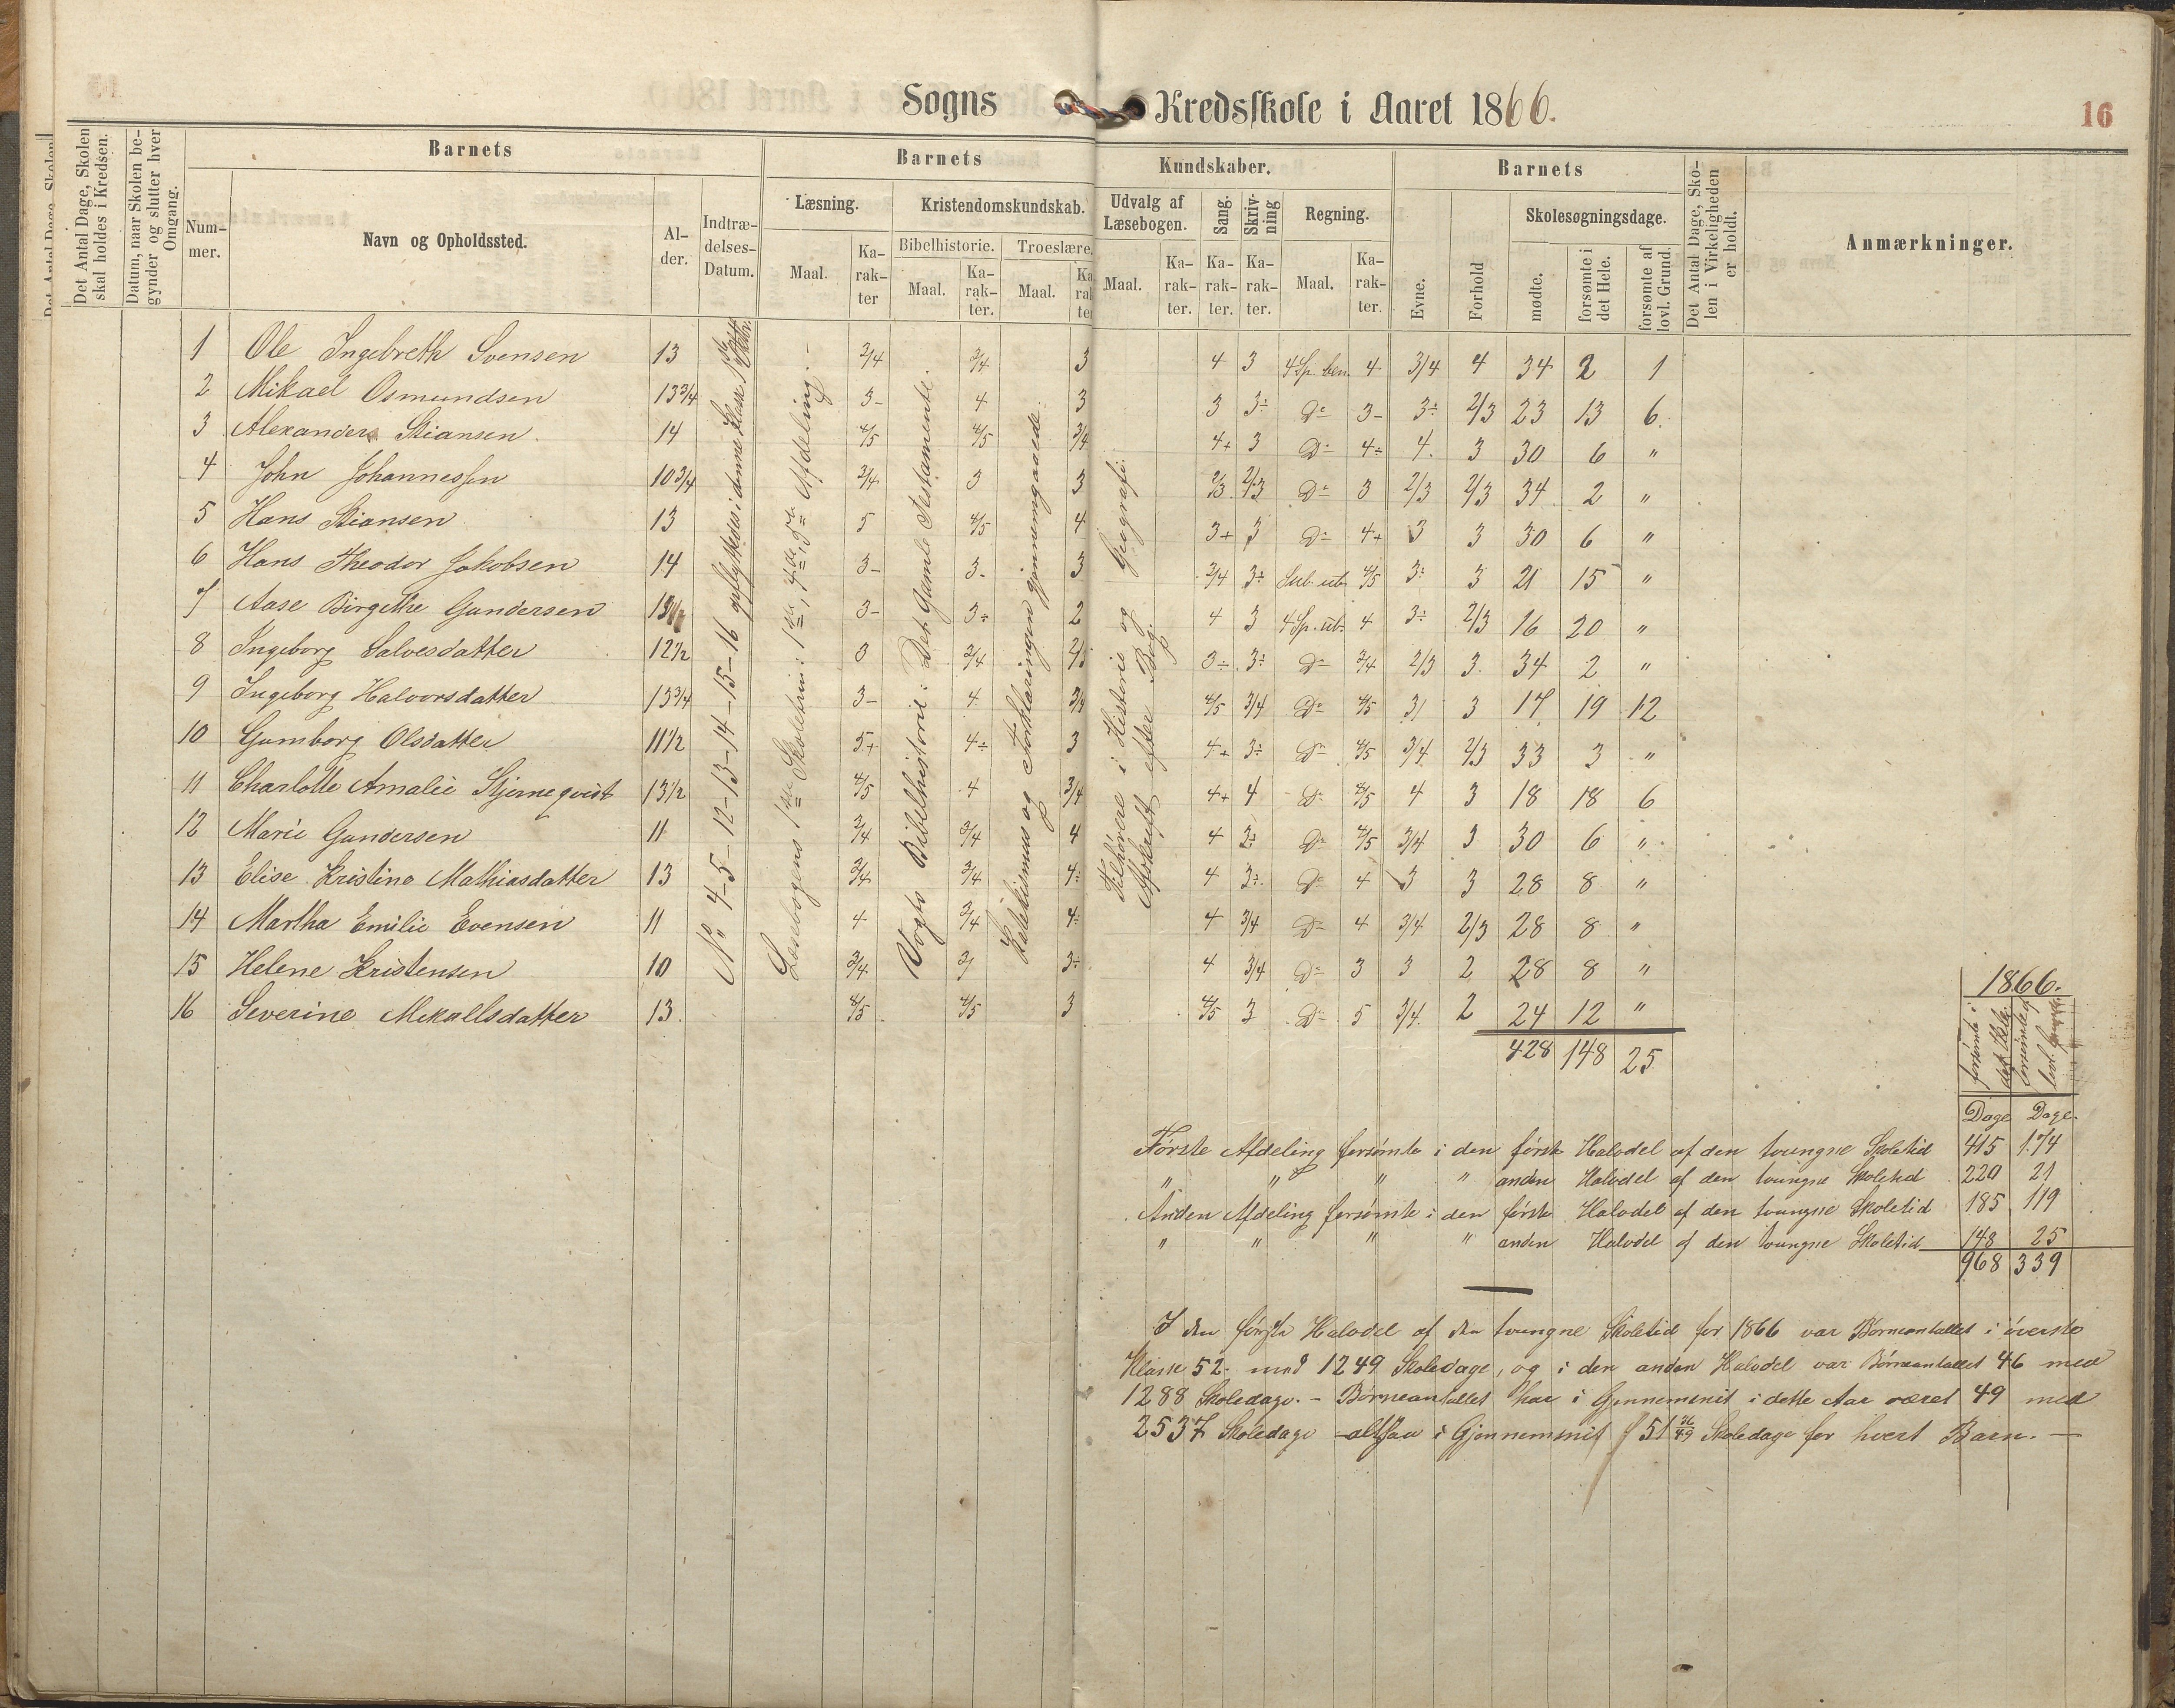 Sogns Kredsskole i Aaret 1866.
16
Det Antal Dage, Skolen skal holdes i Kredsen.
Datum, naar Skolen begynder og slutter hver Omgang.
Barnets
Nummer.
Navn og Opholdssted.
Alder.
Indtrædelses-Datum.
Barnets Kundskaber.
Læsning.
Maal.
Karakter
Kristendomskundskab.
Bibelhistorie.
Maal.
Karakter.
Troeslære.
Maal.
Karakter
Udvalg af Læsebogen.
Maal.
Karakter.
Sang.
Karakter.
Skrivning
Karakter.
Regning.
Maal.
Karakter.
Barnets
Evne.
Forhold
Skolesøgningsdage.
mødte.
forsømte i det Hele.
forsømte af lovl. Grund.
Det Antal Dage, Skolen i Virkeligheden er holdt.
Anmærkninger.
1 Ole Ingebreth Svensen 13 3/4 3/4 3 4 3 4 Sp. ben. 4 3/4 4 34 2 1
2 Mikael Osmundsen 13 3/4 3- 4 3 3 3÷ Do 3- 3÷ 2/3 23 13 6.
3 Alexander Stiansen. 14 4/5 4/5 3/4 4+ 3 Do 4÷ 4. 3 30 6 "
4 John Johannessen 10 3/4 3/4 3 3 2/3 2/3 Do 3 2/3 2/3 34 2 "
5 Hans Stiansen 13 5 4/5 4 3+ 3 Do 4+ 3 3 30 6 "
6 Hans Theodor Jakobsen 14 3- 3- 3 3/4 3÷ Sub. ub. 4/5 3÷ 3 21 15 "
7 Aase Birgithe Gundersen 3- 3÷ 2 4 3 4 Sp. ub. 4 3÷ 2/3 16 20 "
8 Ingeborg Salvesdatter 12 1/2 3 3/4 2/3 3÷ 3÷ Do 3/4 2/3 3. 34 2 "
9 Ingeborg Halvorsdatter 13 3/4 3- 4 3/4 4/5 3/4 Do 4/5 3/ 3 17 19 12
10 Gumborg Olsdatter 11 1/2 5+ 4÷ 3 4+ 3÷ Do 4/5 3/4 2/3 33 3 "
11 Charlotte Amalie Stjerneqvist 13 1/2 4/5 4 3/4 4+ 4 Do 4/5 4 3 18 18 6
12 Marie Gundersen 11 3/4 3/4 4 4 3÷ Do 4/5 3/4 3 30 6 "
13 Elise Kristine Mathiasdatter 13 3/4 3/4 4÷ 4 3÷ Do 4 3 3 28 8 "
14 Martha Emilie Evensen 11 4 3/4 4÷ 4 3/4 Do 4 3/4 2/3 28 8 "
15 Helene Kristensen 10 3/4 3/ 3÷ 4 3/4 Do 3 3 2 28 8 "
16 Severine Mikallsdatter 13. 4/5 4/5 3 4/5 3 Do 5 3/4 2 24 12 "
428 148 25
No 4-5-12-13-14-15-16 opflyttedes i denne Klasse
Læsebogens 1ste Skoletrin: 1ste, 4de, 5te Afdeling.
Vogts Bibelhistorie: Det Gamle Testamente.
Katekismus og Forklaringen gjennemgaaede.
Tilhørere i Historie og Geografi.
Afskrift efter Bog.
1866.
forsømte i det Hele
forsømte af lovl. Grund
Dage Dage.
Første Afdeling forsømte i den første Halvdel af den tvungne Skoletid 415 174
" " " " anden Halvdel af den tvungne Skoletid 220 21
Anden Afdeling forsømte i den første Halvdel af den tvungne Skoletid 185 119
" " " " anden Halvdel af den tvungne Skoletid 148 25
968 339
I den første Halvdel af den tvungne Skoletid for 1866 var Børneantallet i øverste
Klasse 52 med 1249 Skoledage, og i den anden Halvdel var Børneantallet 46 med
1288 Skoledage. - Børneantallet har i Gjennemsnit i dette Aar været 49 med
2537 Skoledage - altsaa i Gjennemsnit 51 38/49 Skoledage for hvert Barn. —